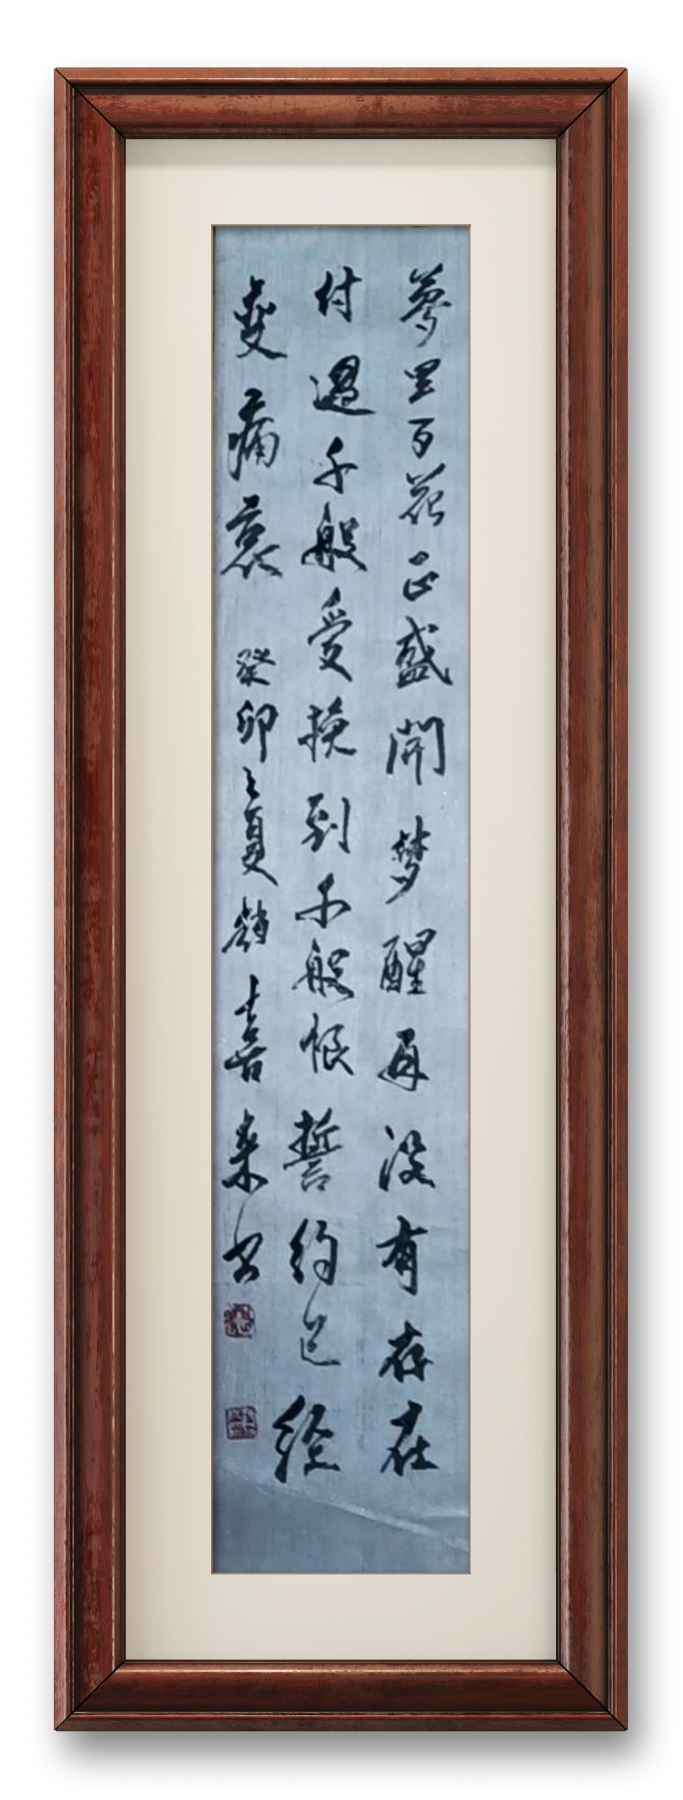 夢里百花正盛開梦醒再没有存在
付過千般爱换到千般恨誓约已经
变痛哀 癸卯之夏趙喜乐书